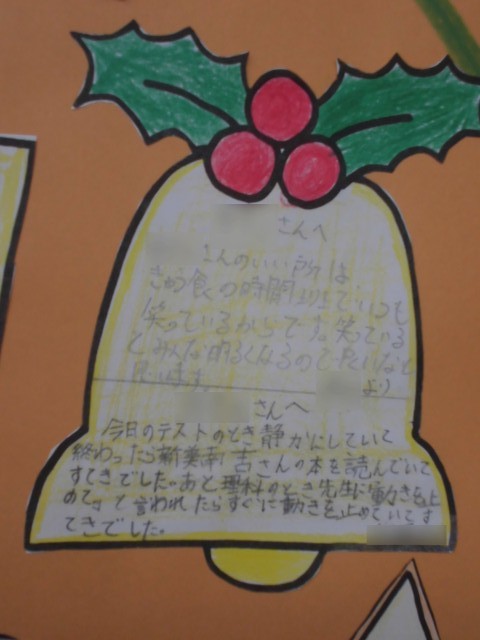 さんへ
さんのいい所は、
きゅう食の時間まで、いつも
笑っているからです。笑っている
とみんな明るくなるので良いなと
思います。
より
さんへ
今日のテストのとき静かにしていて
終わったら新美南吉さんの本を読んでいて
すてきでした。あと、理科のとき先生に「動きを止
めて。」と言われたらすぐに動きを止めていてす
てきでした。